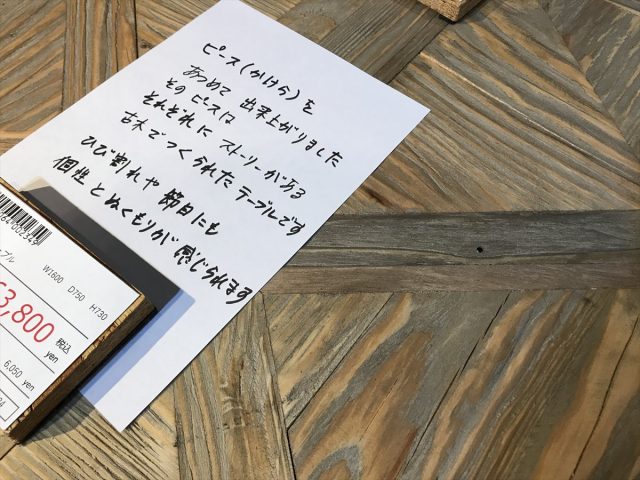 ピース(かけら)を
あつめて 出来上がりました
その ピースは
それぞれに ストーリーがある
古木でつくられたテーブルです
ひび割れや 節目にも
個性とぬくもりが 感じられます
ブル W1600 D750 H730
3,800 yen 税込
6,050 yen